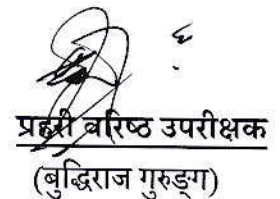 प्रहरी वरिष्ठ उपरीक्षक
(बुद्धिराज गुरुङ्ग)